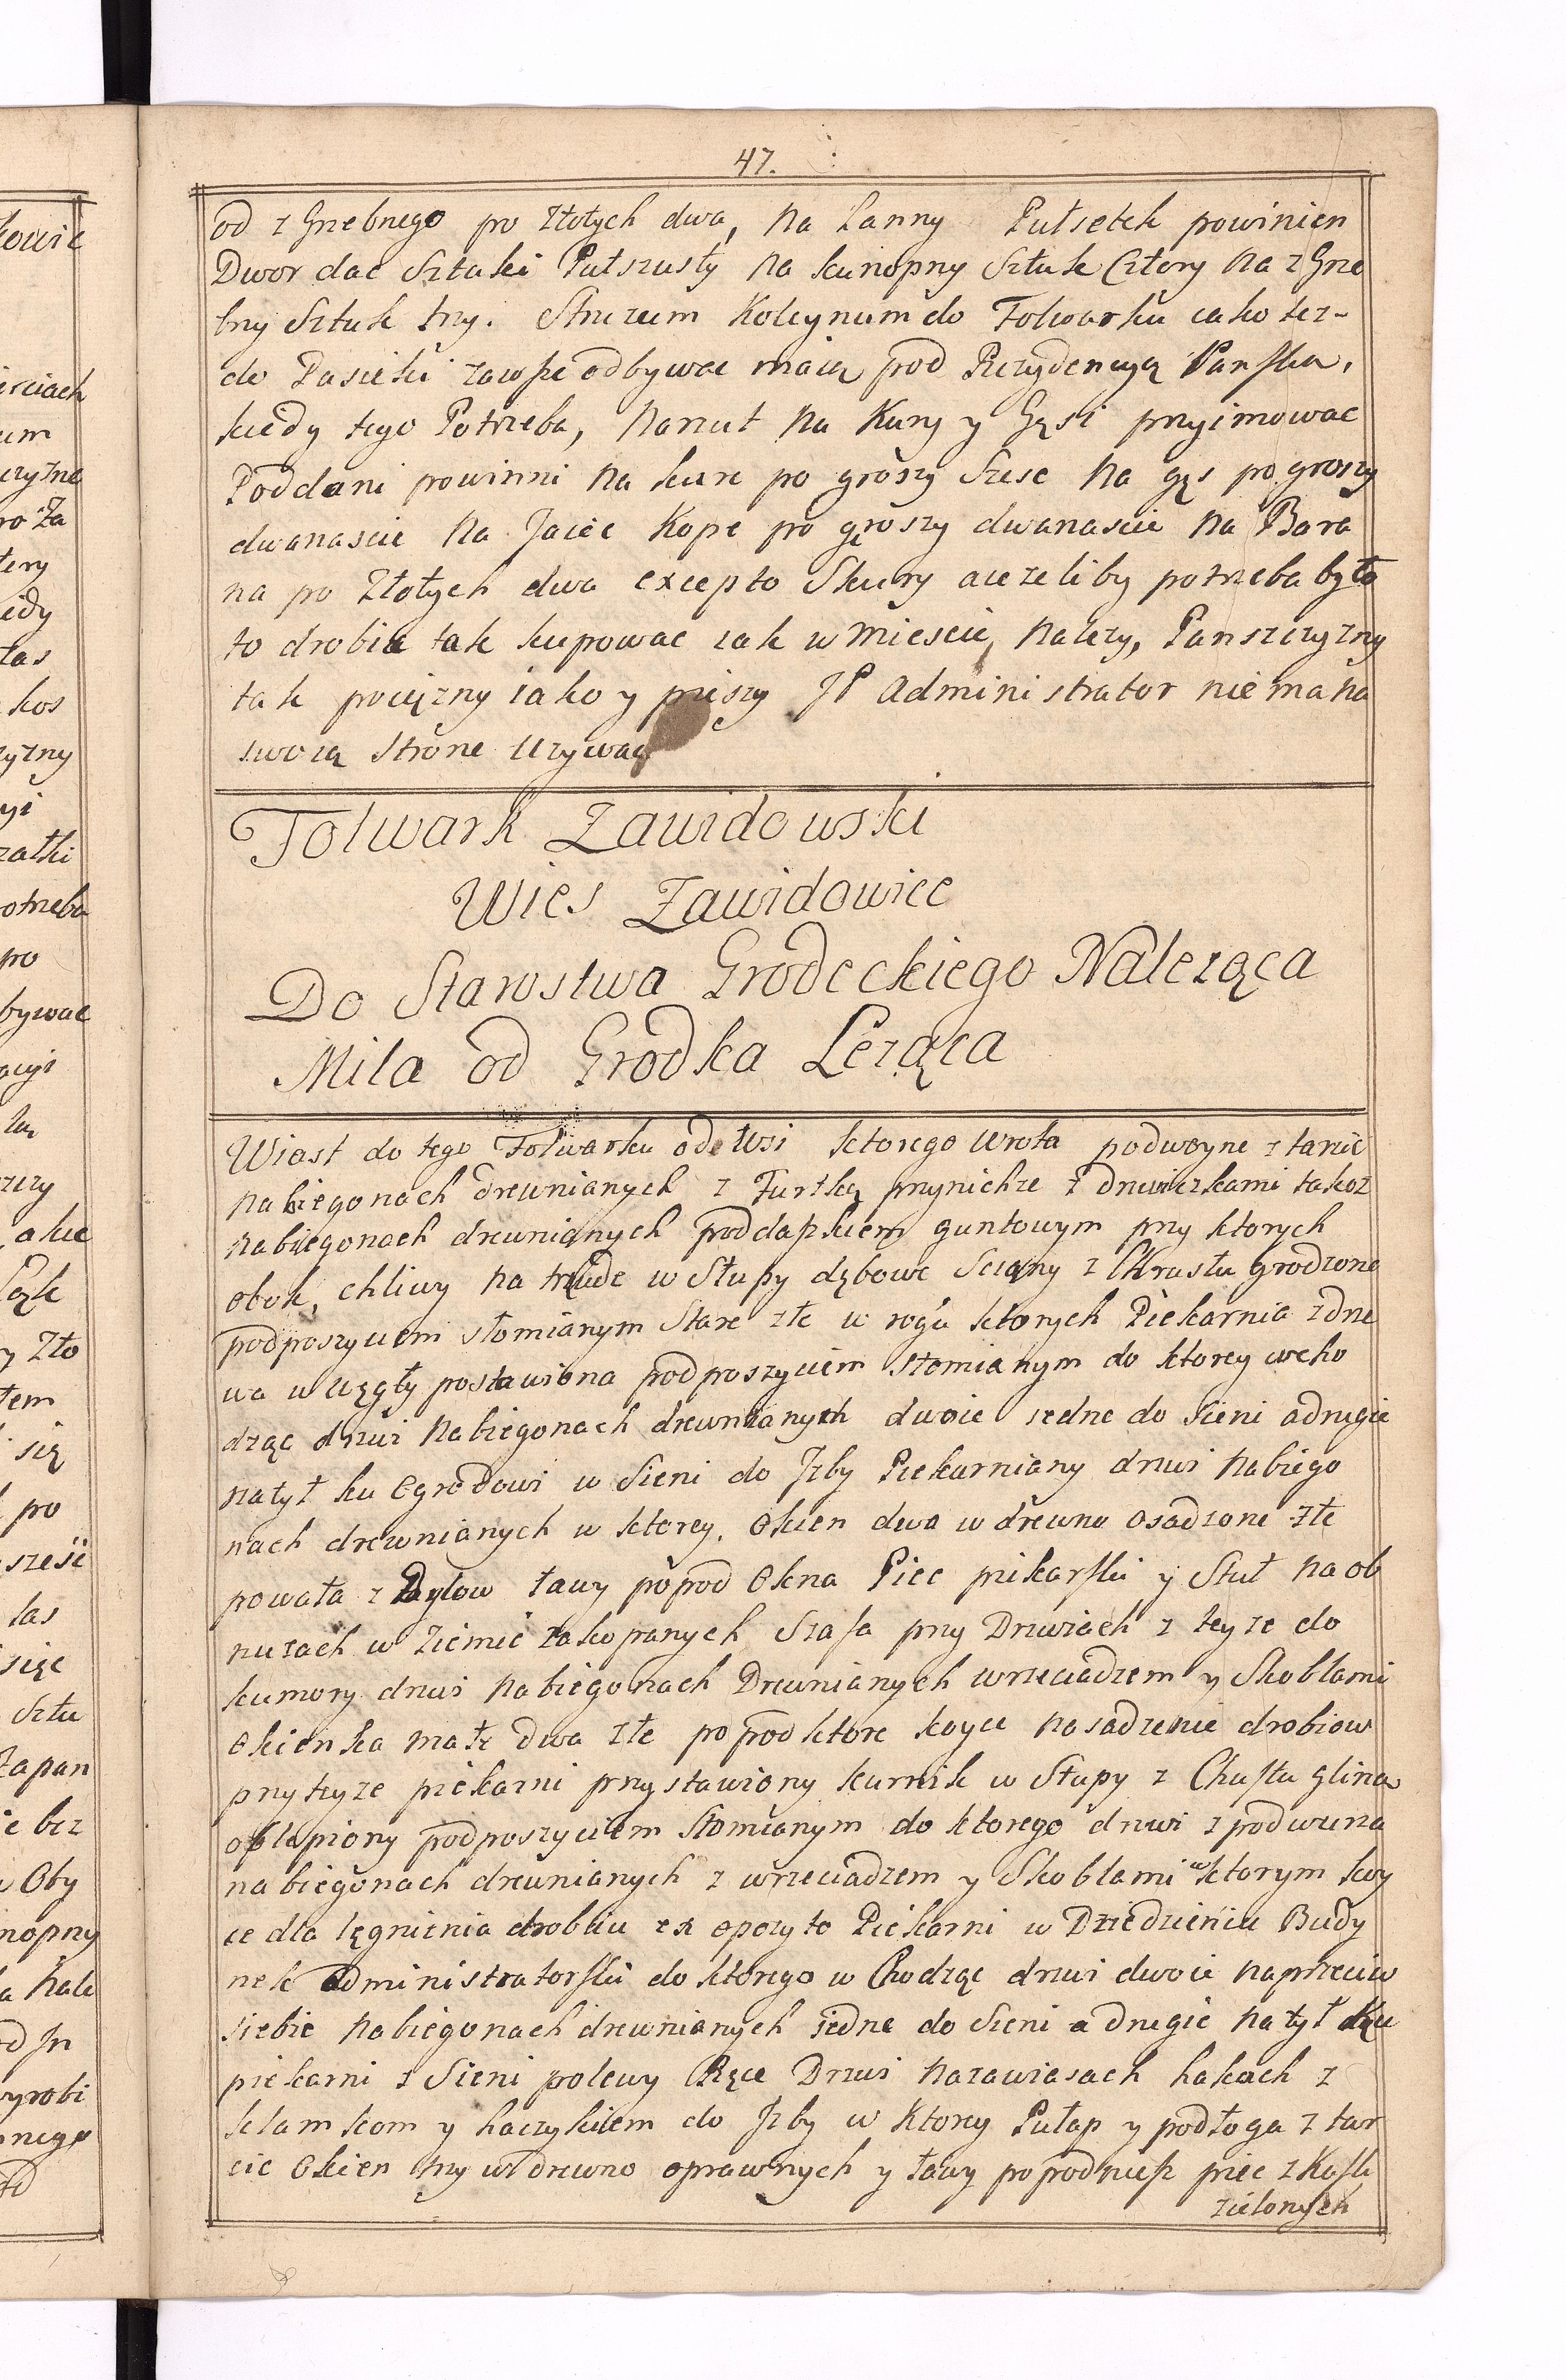 47.
od zGrzebnego po Złotych dwa, na Lanny Pułsetek powinien
Dwor dac Sztuki Pułszusty na kunopny Sztuk Cztery na zGrze
bny Sztuk trzy. Struzum Koleynum do Folwarku iako tez-
do Pasieki zawsze odbywac maią pod Rezydencyą Panską,
kiedy tego Potrzeba, Narzut na Kury y Gęsi przyimowac
Poddani powinni na kure po groszy Szesc na gęs po groszy
dwanascie na Jaiec Kope po groszy dwanascie na Bara
na po Złotych dwa excepto Skury a iezeliby potrzeba było
to drobia tak kupowac iak w Miescie nalezy, Panszczyzny
tak pociązny iako y pieszy JP Administrator nie ma na
swoią strone uzywac
Folwark Zawidowski
Wies Zawidowice
Do Starostwa Grodeckiego Naleząca
Mila od Grodka Leząca
Wiast do tego Folwarku ode Wsi ktorego wrota podwoyne z tarcic
na biegonach drewnianych z Furtką przynichze z drzwiczkami takoz
na biegonach drewnianych pod dapkiem guntowym przy ktorych
obok, chliwy na trzode w Słupy dębowe Sciany z Chrustu grodzone
pod poszyciem słomianym Stare złe w rogu ktorych Piekarnia zdrze
wa w węgły postawiona pod poszyciem słomianym do ktorey wcho
dząc drzwi na biegonach drewnianych dwoie iedne do Sieni a drugie
na tył ku Ogrodowi w Sieni do Jzby Piekarniany drzwi na biego
nach drewnianych w ktorey, Okien dwa w drewno osadzone złe
powała z Dylow ławy popod Okna Piec piekarski y Stuł na ob
nuzach w ziemie zakopanych Szafa przy Drzwiach z teyze do
kumory drzwi na biegonach Drewnianych wrzeciadzem y Skoblami
Okienka małe dwa złe popod ktore koyce na sadzenie drobiow
przy teyze piekarni przystawiony kurnik w Słupy z Chustu gliną
oblepiony pod poszyciem Słomianym do ktorego drzwi z podwurza
na biegonach drewnianych z wrzeciadzem y Skoblami w ktorym koy
ce dla lęgnienia drobiu ex opozyto Piekarni w Dziedzieniu Budy
nek Administratorski do ktorego w Chodząc drzwi dwoie naprzeciw
siebie na biegonach drewnianych iedne do Sieni a drugie na tył ku
piekarni z Sieni polewy Ręce Drzwi na zawiasach hakach z
klamkom y haczykiem do Jzby w ktorey Pułap y podłoga z tar
cic Okien trzy w drewno oprawnych y ławy popod niesz piec z Kafli
zielonych